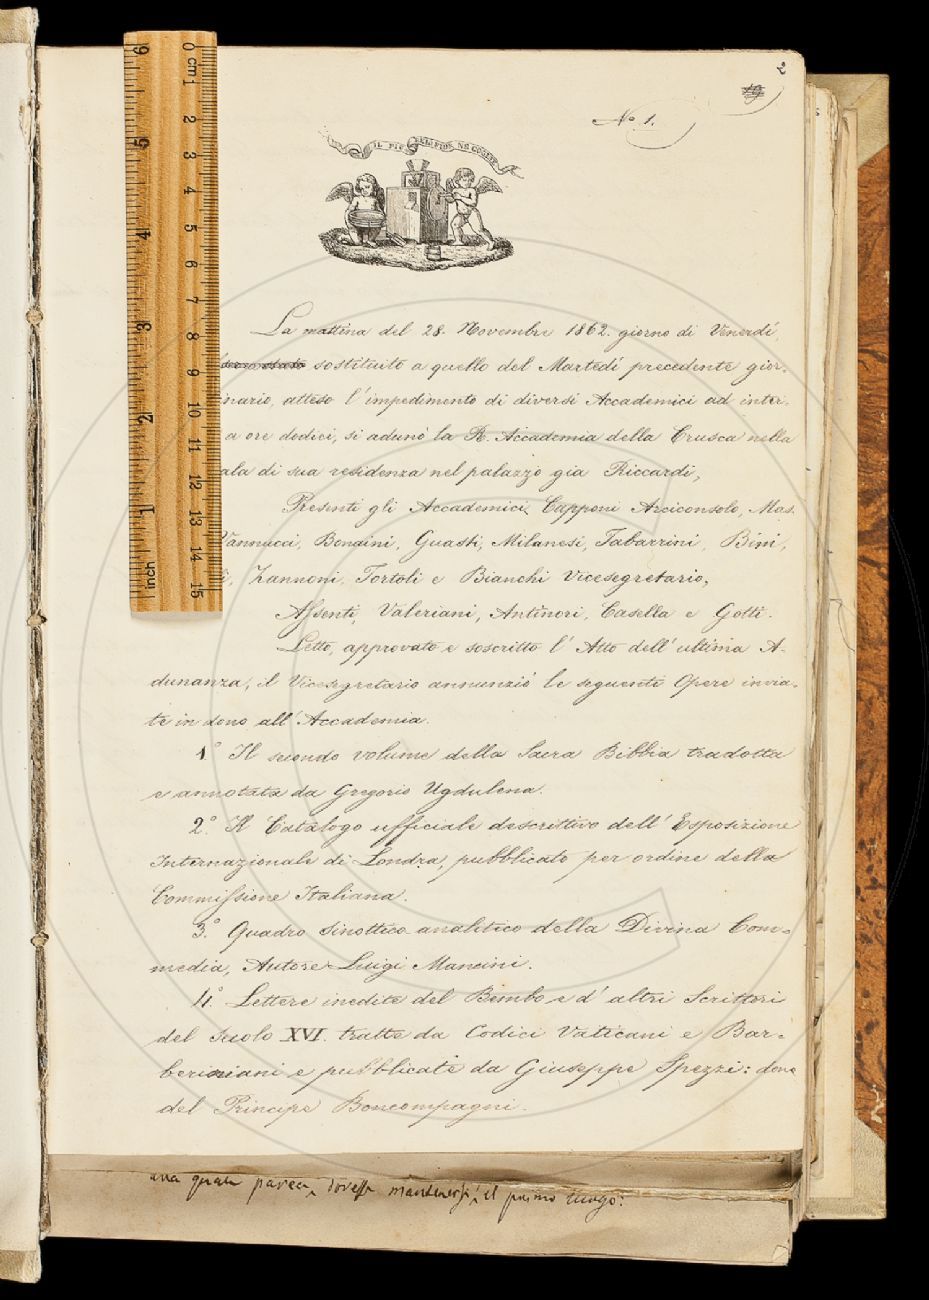 2
19
Nº 1.
IL PIÙ BEL FIOR NE COGLIE
La mattina del 28. Novembre 1862. giorno di Venerdí,
sostituito a quello del Martedí precedente gior-
inario, atteso l'impedimento di diversi Accademici ad inter-
a ore dodici, si adunó la R. Accademia della Crusca nella
ala di sua residenza nel palazzo gia Riccardi,
Presenti gli Accademici, Capponi Arciconsolo, Mas.
Vannucci, Bonaini, Guasti, Milanesi, Tabarrini, Bini,
i, Zannoni, Tortoli e Bianchi Vicesegretario,
Assenti, Valeriani, Antinori, Casella e Gotti.
Letto, approvato e soscritto l'Atto dell'ultima A-
dunanza, il Vicesegretario annunzió le seguenti Opere invia-
te in dono all'Accademia.
1º Il secondo volume della Sacra Bibbia tradotta
e annotata da Gregorio Ugdulena.
2º. Il Catalogo ufficiale descrittivo dell'Esposizione
Internazionale di Londra, pubblicato per ordine della
Commissione Italiana.
3º. Quadro Sinottico-analitico della Divina Com-
media, Autore Luigi Mancini.
4º. Lettere inedite del Bembo e d'altri Scrittori
del Secolo XVI. tratte da Codici Vaticani e Bar-
beriniani e pubblicate da Giuseppe Spezzi: dono
del Principe Boncompagni.
una quale parea, dovesse mantenersi il primo luogo:
0 cm 1 2 3 4 5 6 7 8 9 10 11 12 13 14 15
inch 1 2 3 4 5 6